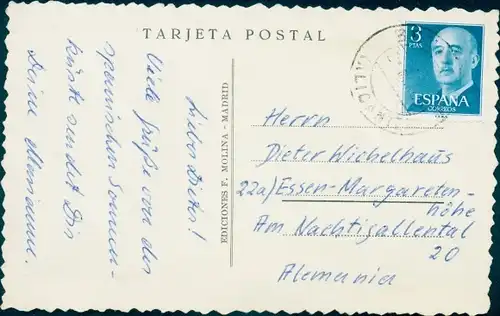 TARJETA POSTAL
Lieber Dieter!
Viele Grüße von der
spanischen Sonnen-
küste sendet Dir
Deine Marianne.
EDICIONES F. MOLINA - MADRID
3
PTAS
ESPAÑA
CORREOS
Herrn
Dieter Wichelhaus
22a) Essen-Margareten-
höhe
Am Nachtigallental
20
Alemania